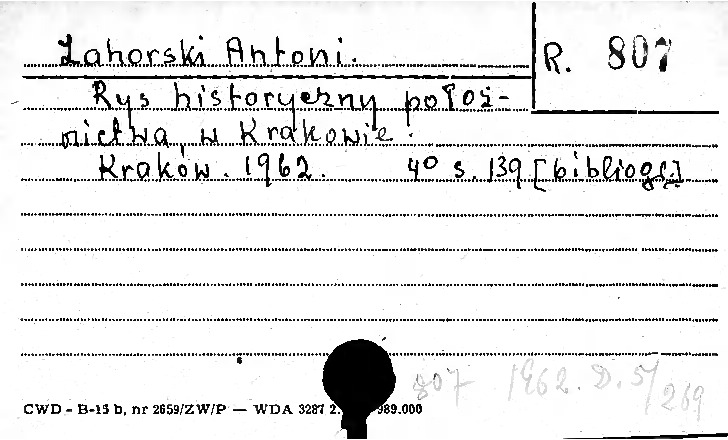 Zahorski Antoni.
R. 807
Rys historyczny położ-
nictwa w Krakowie.
Kraków. 1962. 4° s. 139 [bibliogr.]
807 1962. D. 5/269
CWD - B-15 b, nr 2659/ZW/P — WDA 3287 2. 989.000